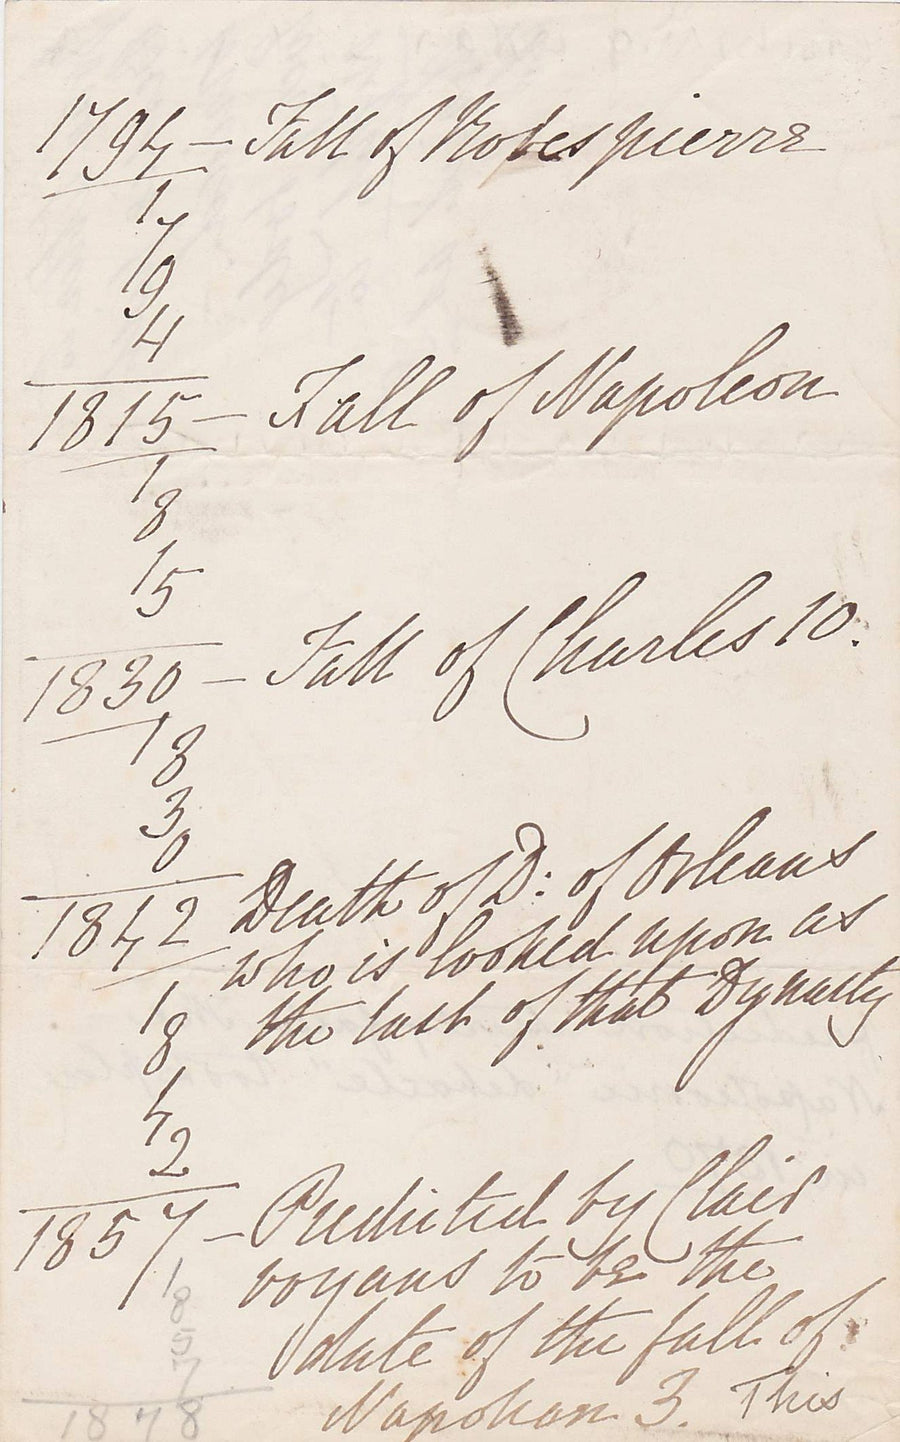 1794 – Fall of Robespierre
1
7
9
4
1815 – Fall of Napoleon
1
8
1
5
1830 – Fall of Charles 10.
1
8
3
0
1842 Death of D: of Orleans
who is looked upon as
the last of that Dynasty
1
8
4
2
1857 – Predicted by Clair
voyans to be the
date of the fall of
Napoleon 3. This
1
8
5
7
1878